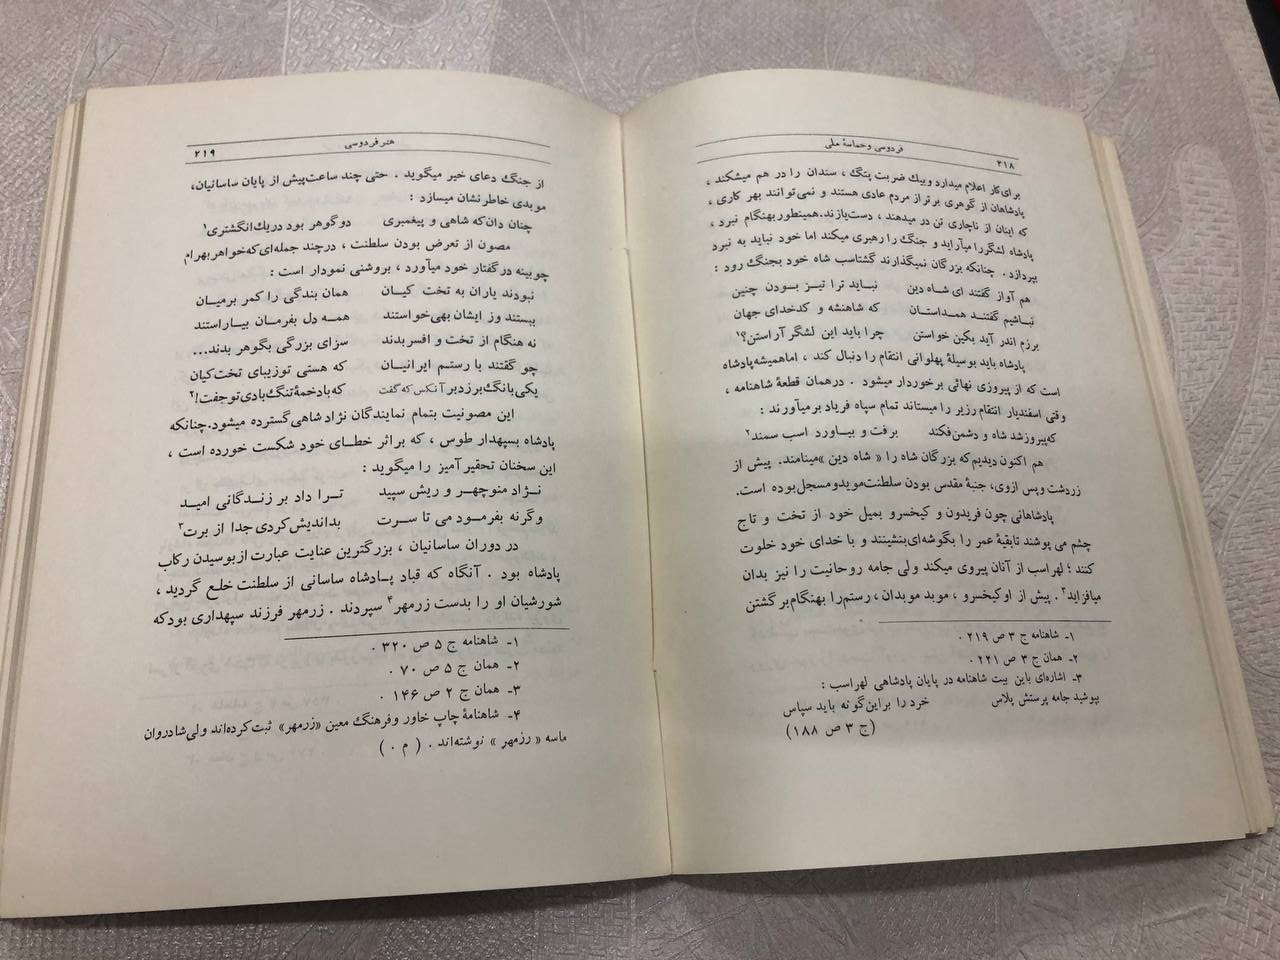 ۲۱۸
فردوسی و حماسهٔ ملی
برای کار اعلام میدارد وبیك ضربت پتگ ، سندان را در هم میشکند ،
پادشاهان از گوهری برتر از مردم عادی هستند و نمی‌توانند بهر کاری ،
که اینان از ناچاری تن در میدهند ، دست یازند.همینطور بهنگام نبرد ،
پادشاه لشگر را میآراید و جنگ را رهبری میکند اما خود نباید به نبرد
بپردازد . چنانکه بزرگان نمیگذارند گشتاسب شاه خود بجنگ رود :
هم آواز گفتند ای شاه دین نباید ترا تیز بودن چنین
نباشیم گفتند همداستان که شاهنشه و کدخدای جهان
برزم اندر آید بکین خواستن چرا باید این لشگر آراستن؟۱
پادشاه باید بوسیلهٔ پهلوانی انتقام را دنبال کند ، اما همیشه پادشاه
است که از پیروزی نهائی برخوردار میشود . در همان قطعهٔ شاهنامه ،
وقتی اسفندیار انتقام زریر را میستاند تمام سپاه فریاد بر میآورند :
که پیروز شد شاه و دشمن فکند برفت و بیاورد اسب سمند۲
هم اکنون دیدیم که بزرگان شاه را « شاه دین »مینامند. پیش از
زردشت وپس ازوی، جنبهٔ مقدس بودن سلطنت موید و مسجل بوده است.
پادشاهانی چون فریدون و کیخسرو بمیل خود از تخت و تاج
چشم می پوشند تابقیهٔ عمر را بگوشه‌ای بنشینند و با خدای خود خلوت
کنند ؛ لهراسب از آنان پیروی میکند ولی جامه روحانیت را نیز بدان
میافزاید۳. پیش از او کیخسرو ، موبد موبدان ، رستم را بهنگام بر گشتن
۱- شاهنامه ج ۳ ص ۲۱۹ .
۲- همان ج ۳ ص ۲۲۱ .
۳- اشاره‌ای باین بیت شاهنامه در پایان پادشاهی لهراسب :
بپوشید جامه پرستش پلاس خرد را براین گونه باید سپاس
(ج ۳ ص ۱۸۸)
هنر فردوسی
۲۱۹
از جنگ دعای خیر میگوید . حتی چند ساعت پیش از پایان ساسانیان،
موبدی خاطرنشان میسازد :
چنان دان که شاهی و پیغمبری دو گوهر بود در یك انگشتری۱
مصون از تعرض بودن سلطنت ، در چند جمله‌ای که خواهر بهرام
چوبینه در گفتار خود میآورد ، بروشنی نمودار است :
نبودند یاران به تخت کیان همان بندگی را کمر برمیان
ببستند وز ایشان بهی خواستند همه دل بفرمان بیاراستند
نه هنگام از تخت و افسر بدند سزای بزرگی بگوهر بدند...
چو گفتند با رستم ایرانیان که هستی توزیبای تخت کیان
یکی بانگ برزد بر آنکس که گفت که بادخمهٔ تنگ بادی تو جفت!۲
این مصونیت بتمام نمایندگان نژاد شاهی گسترده میشود.چنانکه
پادشاه بسپهدار طوس ، که بر اثر خطای خود شکست خورده است ،
این سخنان تحقیر آمیز را میگوید :
نژاد منوچهر و ریش سپید ترا داد بر زندگانی امید
وگرنه بفرمودمی تا سرت بداندیش کردی جدا از برت۳
در دوران ساسانیان ، بزرگترین عنایت عبارت از بوسیدن رکاب
پادشاه بود . آنگاه که قباد پادشاه ساسانی از سلطنت خلع گردید ،
شورشیان او را بدست زرمهر۴ سپردند . زرمهر فرزند سپهداری بود که
۱- شاهنامه ج ۵ ص ۳۲۰ .
۲- همان ج ۵ ص ۷۰ .
۳- همان ج ۲ ص ۱۴۶ .
۴- شاهنامهٔ چاپ خاور وفرهنگ معین «زرمهر» ثبت کرده‌اند ولی شادروان
ماسه « رزمهر » نوشته‌اند . ( م . )